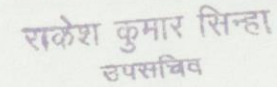 राकेश कुमार सिन्हा
उपसचिव